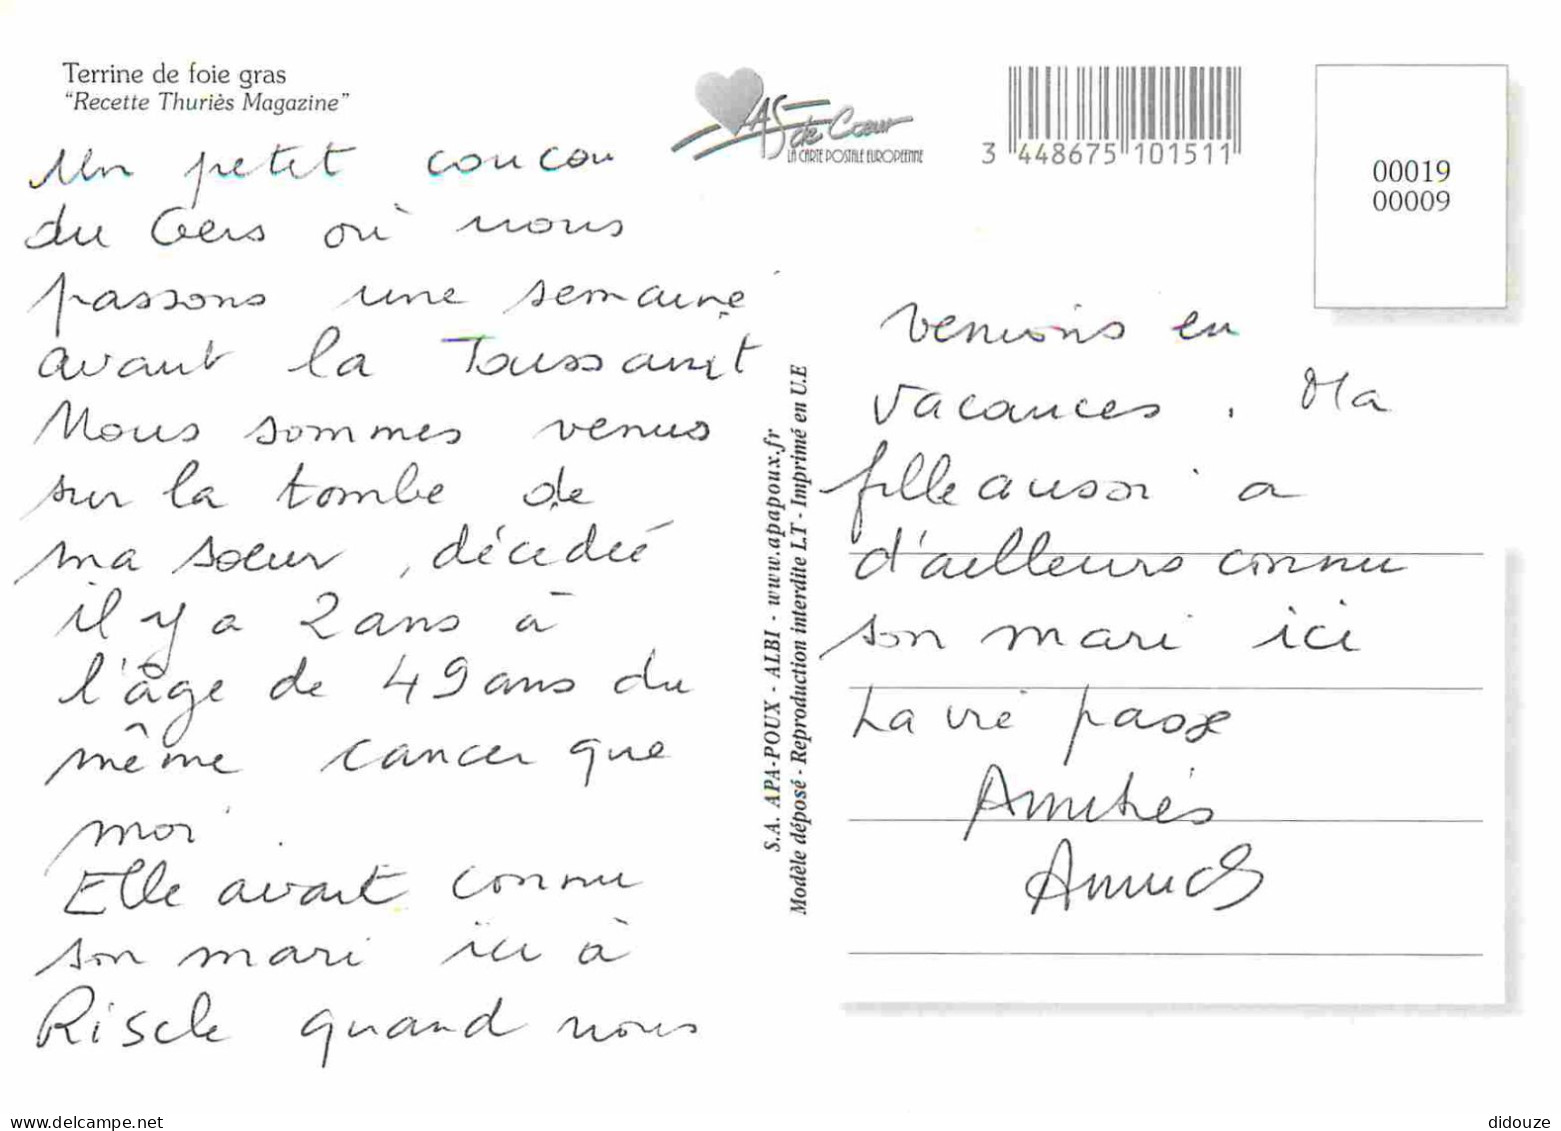 Terrine de foie gras
"Recette Thuriès Magazine"
Un petit coucou
du Gers où nous
passons une semaine
avant la Toussaint
Nous sommes venus
sur la tombe de
ma soeur, décédée
il y a 2 ans à
l'âge de 49 ans du
même cancer que
moi.
Elle avait connu
son mari ici à
Riscle quand nous
AS de Cœur
LA CARTE POSTALE EUROPEENNE
3 448675 101511
00019
00009
S.A. APA-POUX - ALBI - www.apapoux.fr
Modèle déposé - Reproduction interdite LT - Imprimé en U.E
venions en
vacances. Ma
fille aussi a
d'ailleurs connu
son mari ici
La vie passe
Amitiés
www.delcampe.net
didouze